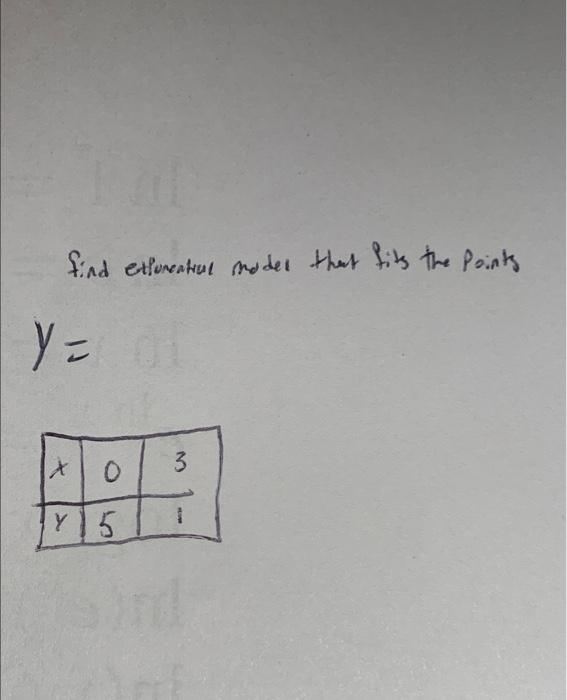 find exponential model that fits the Points
Y =
X 0 3
Y 5 1